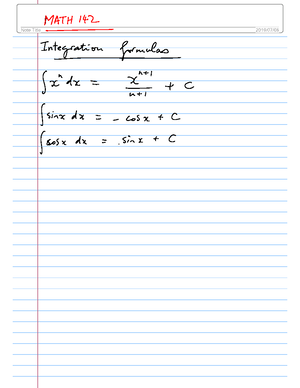 MATH 142
Note Title
2019/07/08
Integration formulas
∫ xⁿ dx = xⁿ⁺¹/(n+1) + C
∫ sinx dx = - cosx + C
∫ cosx dx = sinx + C